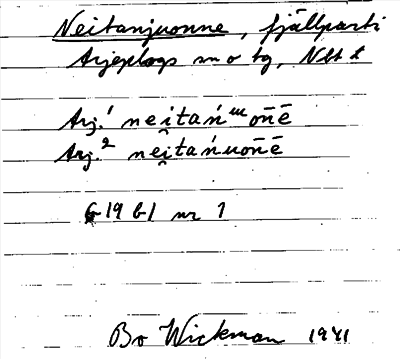 Neitanjuonne, fjällparti
Arjeplogs sn o tg, Nbt l
Arj.¹ neitańᵘon̄ē
Arj.² nei̯tańuon̄ē
G 19 b1 nr 1
Bo Wickman 1941